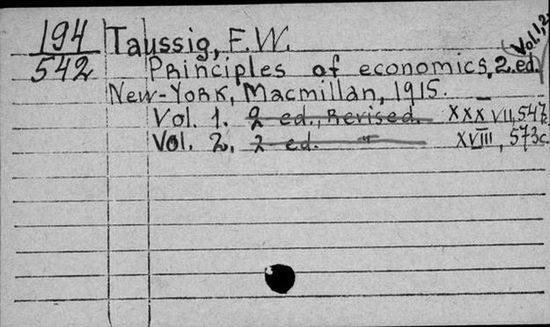 194 Taussig, F.W.
542 Principles of economics, 2.ed. (Vol.1,2
New-York, Macmillan, 1915.
Vol. 1. 2 ed., Revised. XXXVII, 547
Vol. 2. 2 ed. " XVIII, 573c.